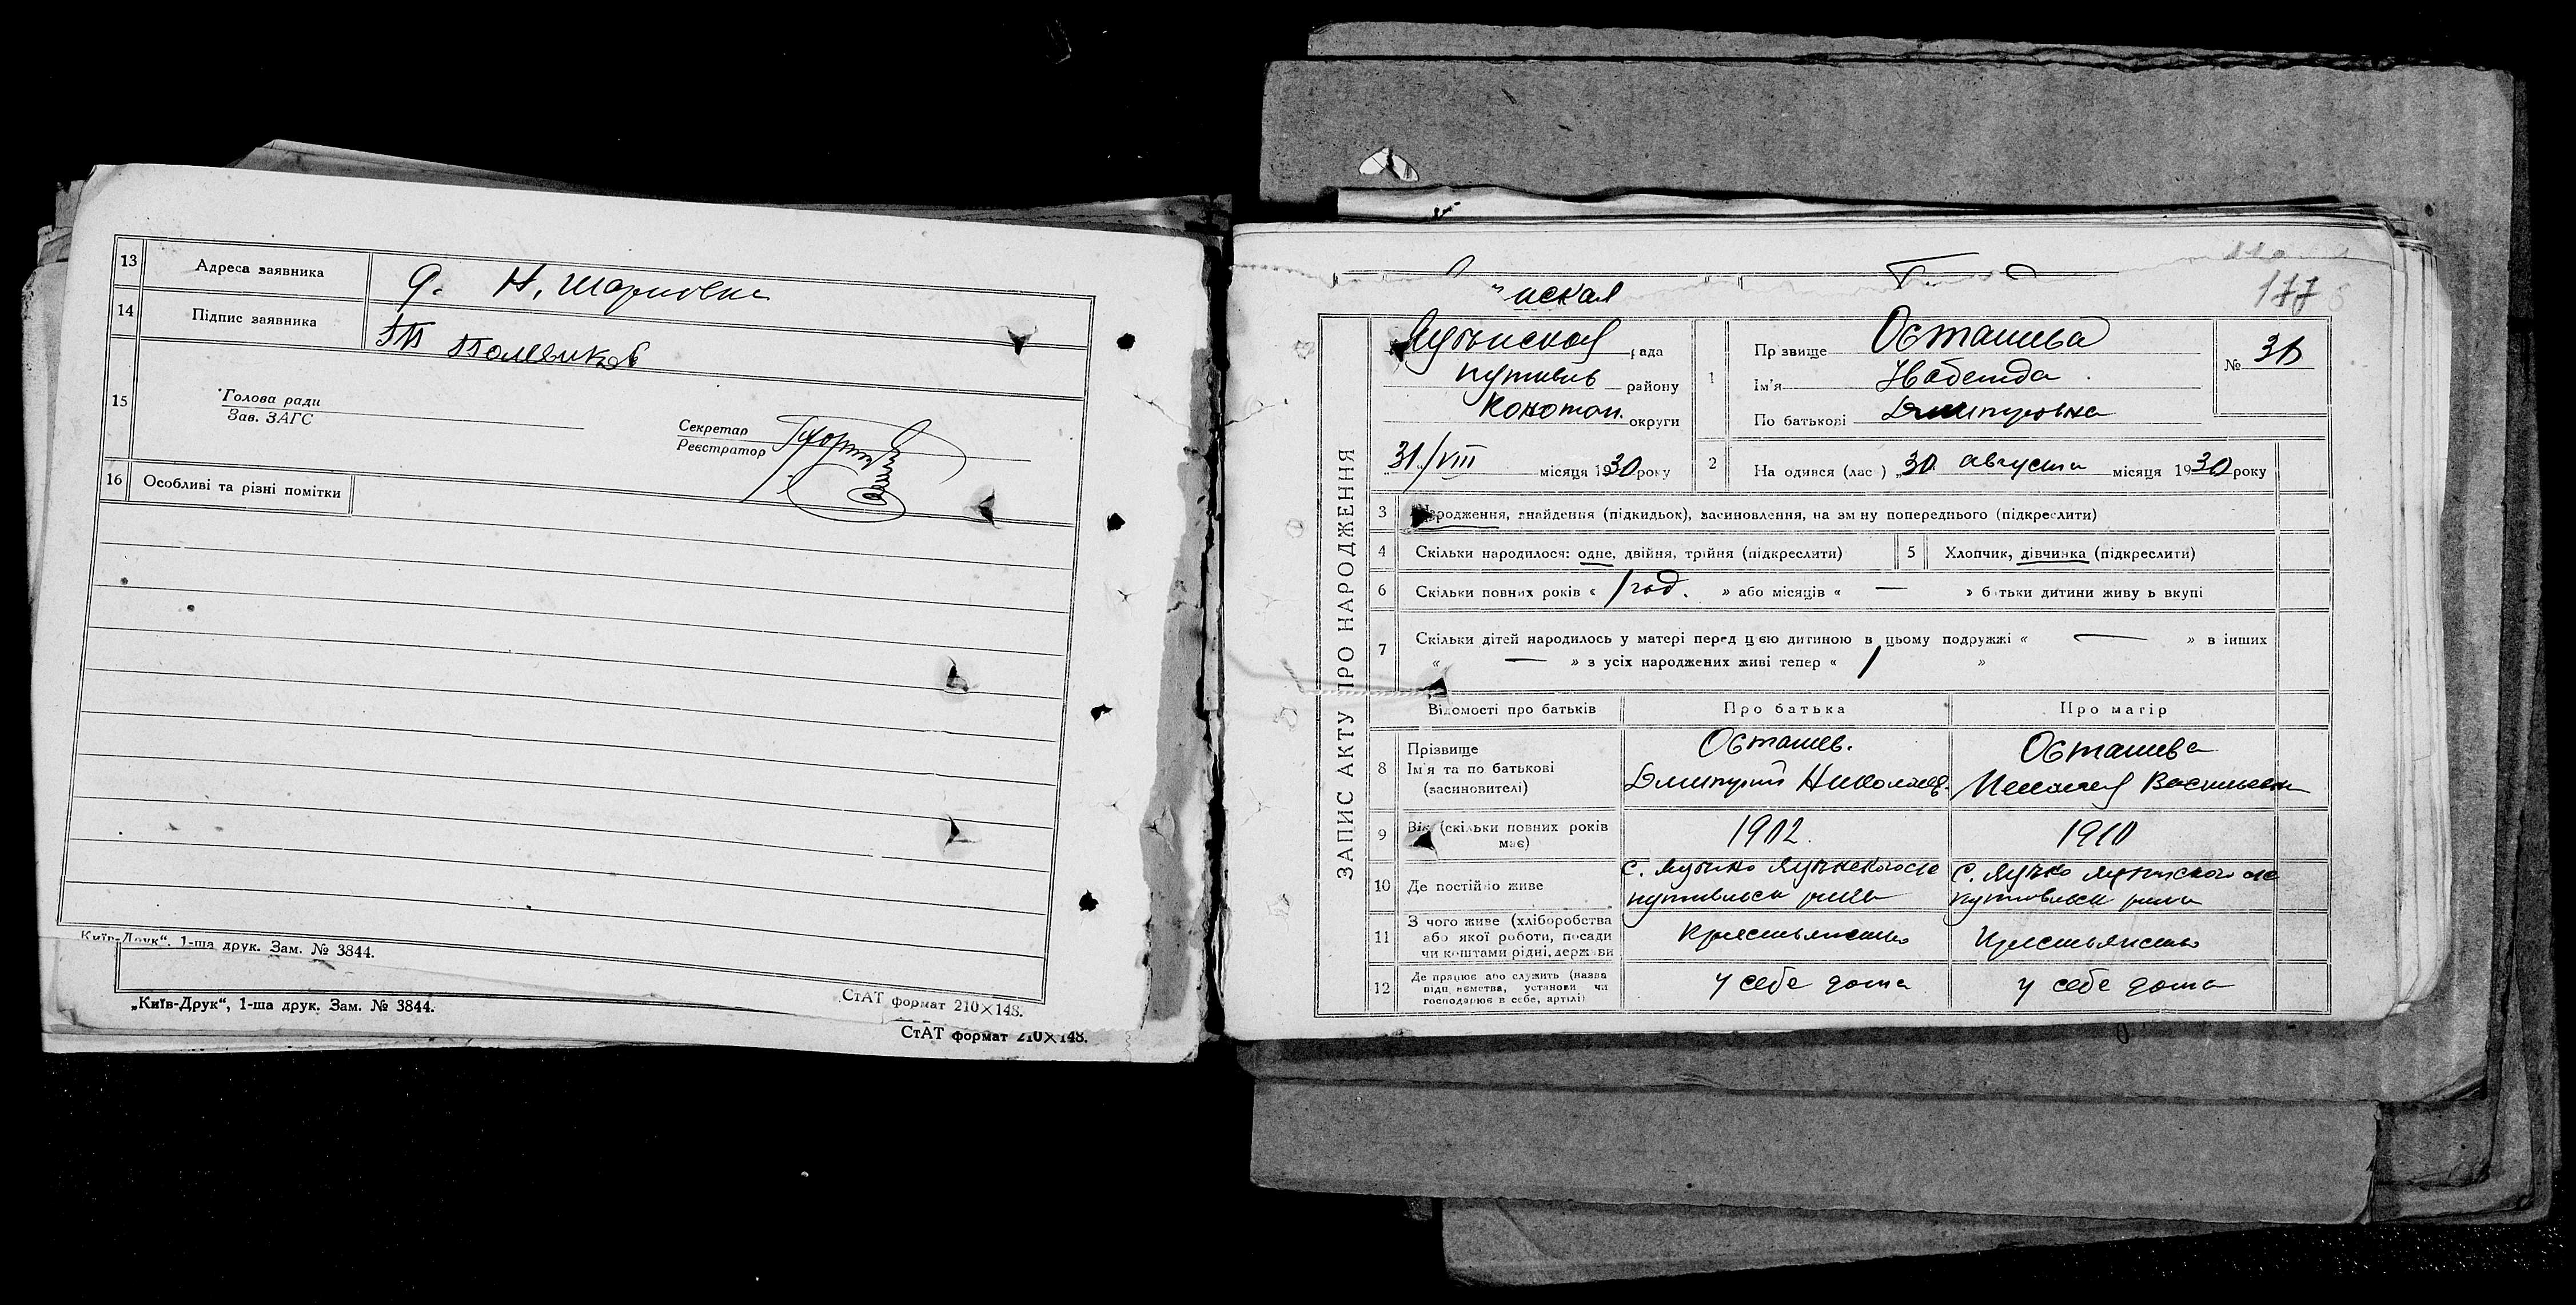 13 Адреса заявника
д. Н. Шарповка
14 Підпис заявника
Полевиков
15 Голова ради
Зав. ЗАГС
Секретар
Реєстратор
16 Особливі та різні помітки
Київ-Друк“. 1-ша друк. Зам. № 3844.
СтАТ формат 210×148.
„Київ-Друк“, 1-ша друк. Зам. № 3844.
СтАТ формат 210×148.
177
ЗАПИС АКТУ ПРО НАРОДЖЕННЯ
рада
Путивль району
Конотоп. округи
31/VIII місяця 1930 року
1 Прізвище Осташева
Ім'я Надежда
По батькові Дмитровна
№
2 На одився (лас ) „30 августа місяця 1930 року
3 Народження, знайдення (підкидьок), засиновлення, на зміну попереднього (підкреслити)
4 Скільки народилося: одне, двійня, трійня (підкреслити)
5 Хлопчик, дівчинка (підкреслити)
6 Скільки повних років « 1 год. » або місяців « — » батьки дитини живуть вкупі
7 Скільки дітей народилось у матері перед цією дитиною в цьому подружжі « — » в інших
« — » з усіх народжених живі тепер « 1 »
Відомості про батьків
Про батька
Про матір
8 Прізвище
Ім'я та по батькові
(засиновителі)
Осташев.
Дмитрий Николаев.
Осташева
Пелагея Васильевн
9 Вік (скільки повних років
має)
1902.
1910
10 Де постійно живе
11 З чого живе (хліборобства
або якої роботи, посади
чи коштами рідні, держави
Крестьянство
Крестьянство
12 Де працює або служить (назва
підприємства, установи чи
господарює в себе, артілі)
у себе дома
у себе дома